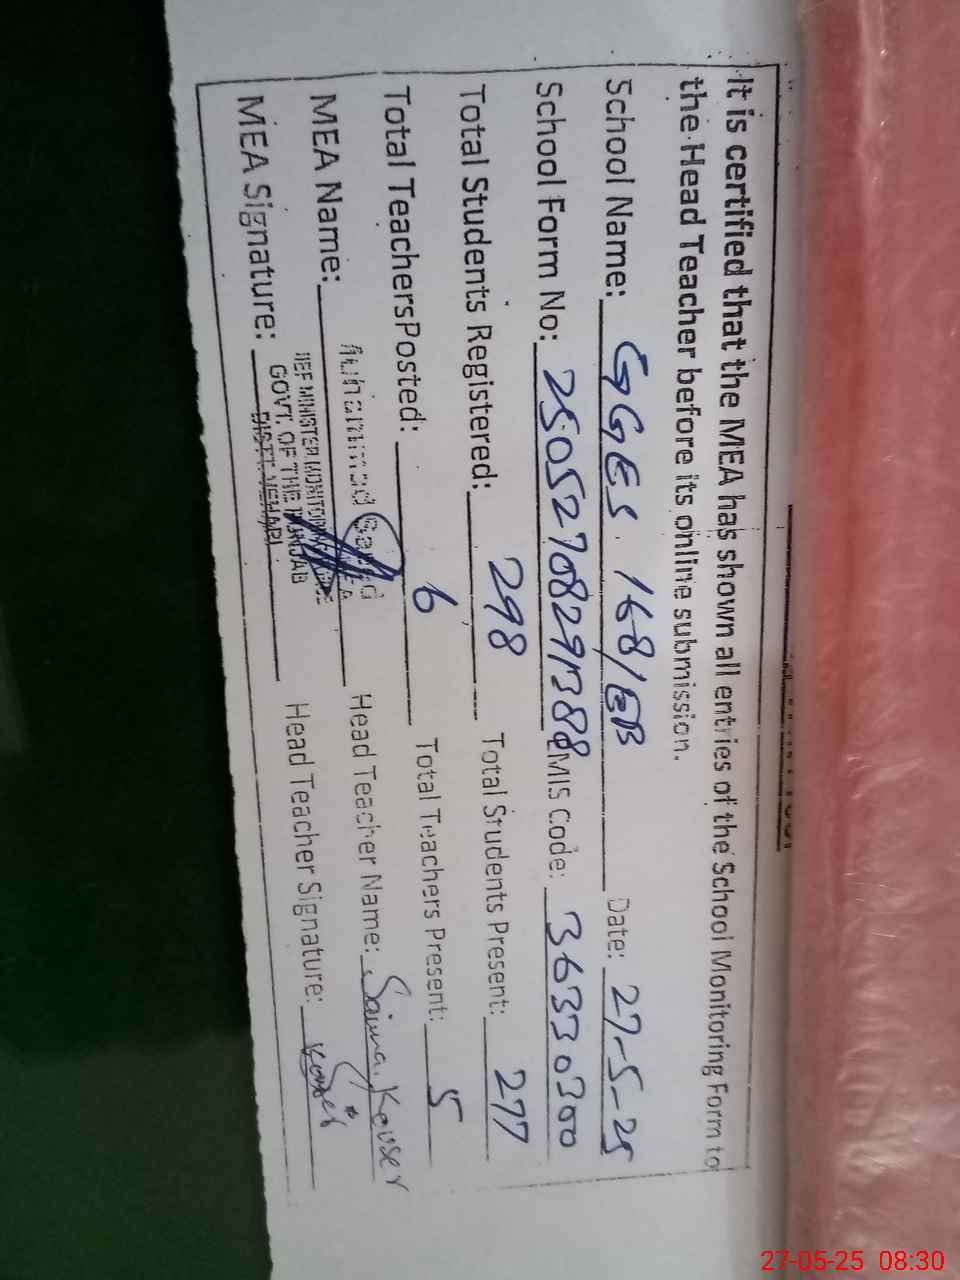 It is certified that the MEA has shown all entries of the School Monitoring Form to
the Head Teacher before its online submission.
School Name: GGES. 168/EB Date: 27-5-25
School Form No: 25052708291388 EMIS Code: 36330300
Total Students Registered: 298 Total Students Present: 277
Total TeachersPosted: 6 Total Teachers Present: 5
MEA Name: Muhammad Head Teacher Name: Saima Kouser
MEA Signature: Head Teacher Signature: Kouser
GOVT. OF THE PUNJAB
DISTT. VEHARI
27-05-25 08:30